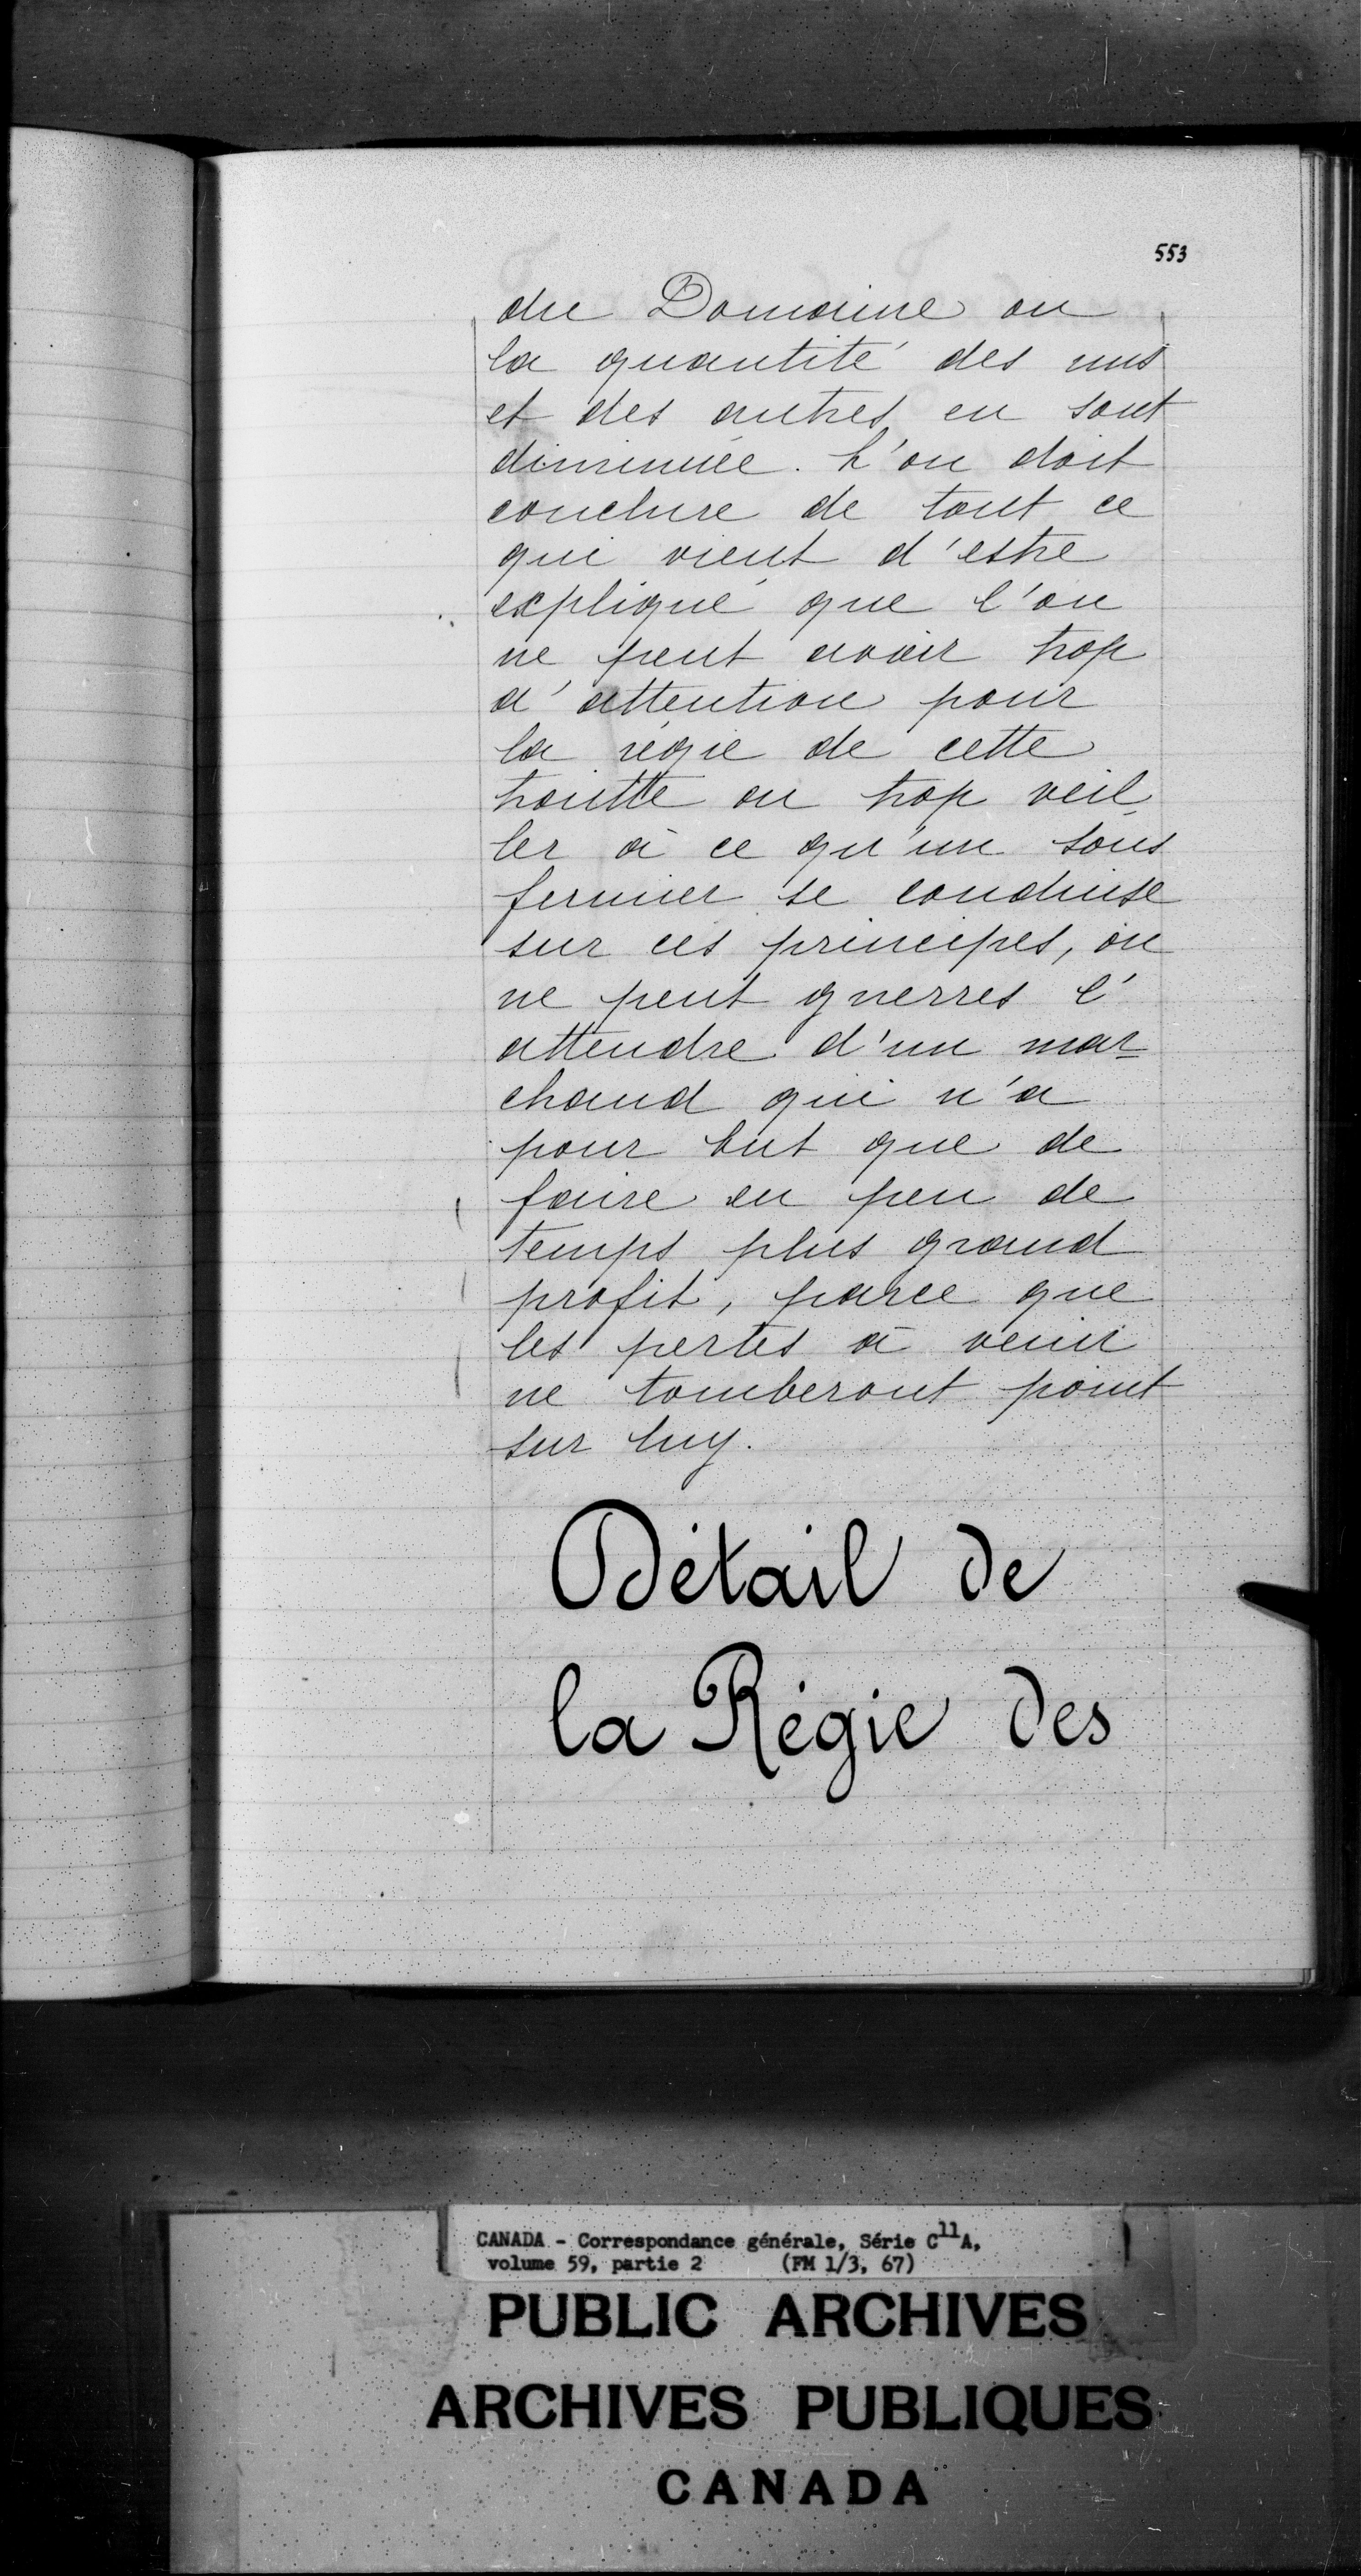 553
du Domaine ou
la quantité des uns
et des autres en sont
diminuée. L'on doit
conclure de tout ce
qui vient d'estre
expliqué que l'on
ne peut avoir trop
d'attention pour
la régie de cette
traitte ou trop veil
ler à ce qu'un sous
fermier se conduise
sur ces principes, on
ne peut guerres l'
attendre d'un mar=
chand qui n'a
pour but que de
faire en peu de
temps plus grand
profit, parce que
les pertes à venir
ne tomberont point
sur luy.
Détail de
la Régie des
CANADA - Correspondance générale, Série C11A,
volume 59, partie 2 (FM 1/3, 67)
PUBLIC ARCHIVES
ARCHIVES PUBLIQUES
CANADA